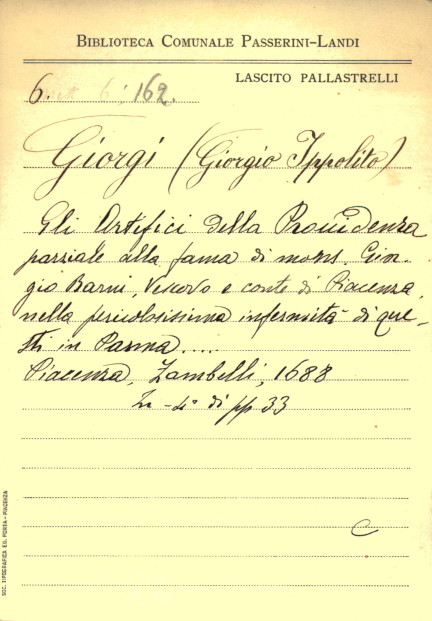 BIBLIOTECA COMUNALE PASSERINI-LANDI
LASCITO PALLASTRELLI
6. 6. 162.
Giorgi (Giorgio Ippolito)
Gli Artifici della Providenza
parziale alla fama di mons. Gior-
gio Barni, Vescovo e conte di Piacenza,
nella pericolosissima infermità di que-
sti in Parma....
Piacenza, Zambelli, 1688
In-4° di pp 33
C
SOC. TIPOGRAFICA ED. PORTA - PIACENZA